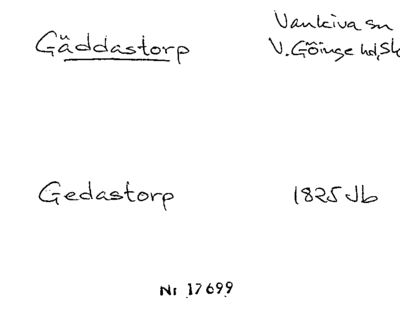 Gäddastorp
Vankiva sn
V. Göinge hd, Sk
Gedastorp
1825 Jb
Nr 17699